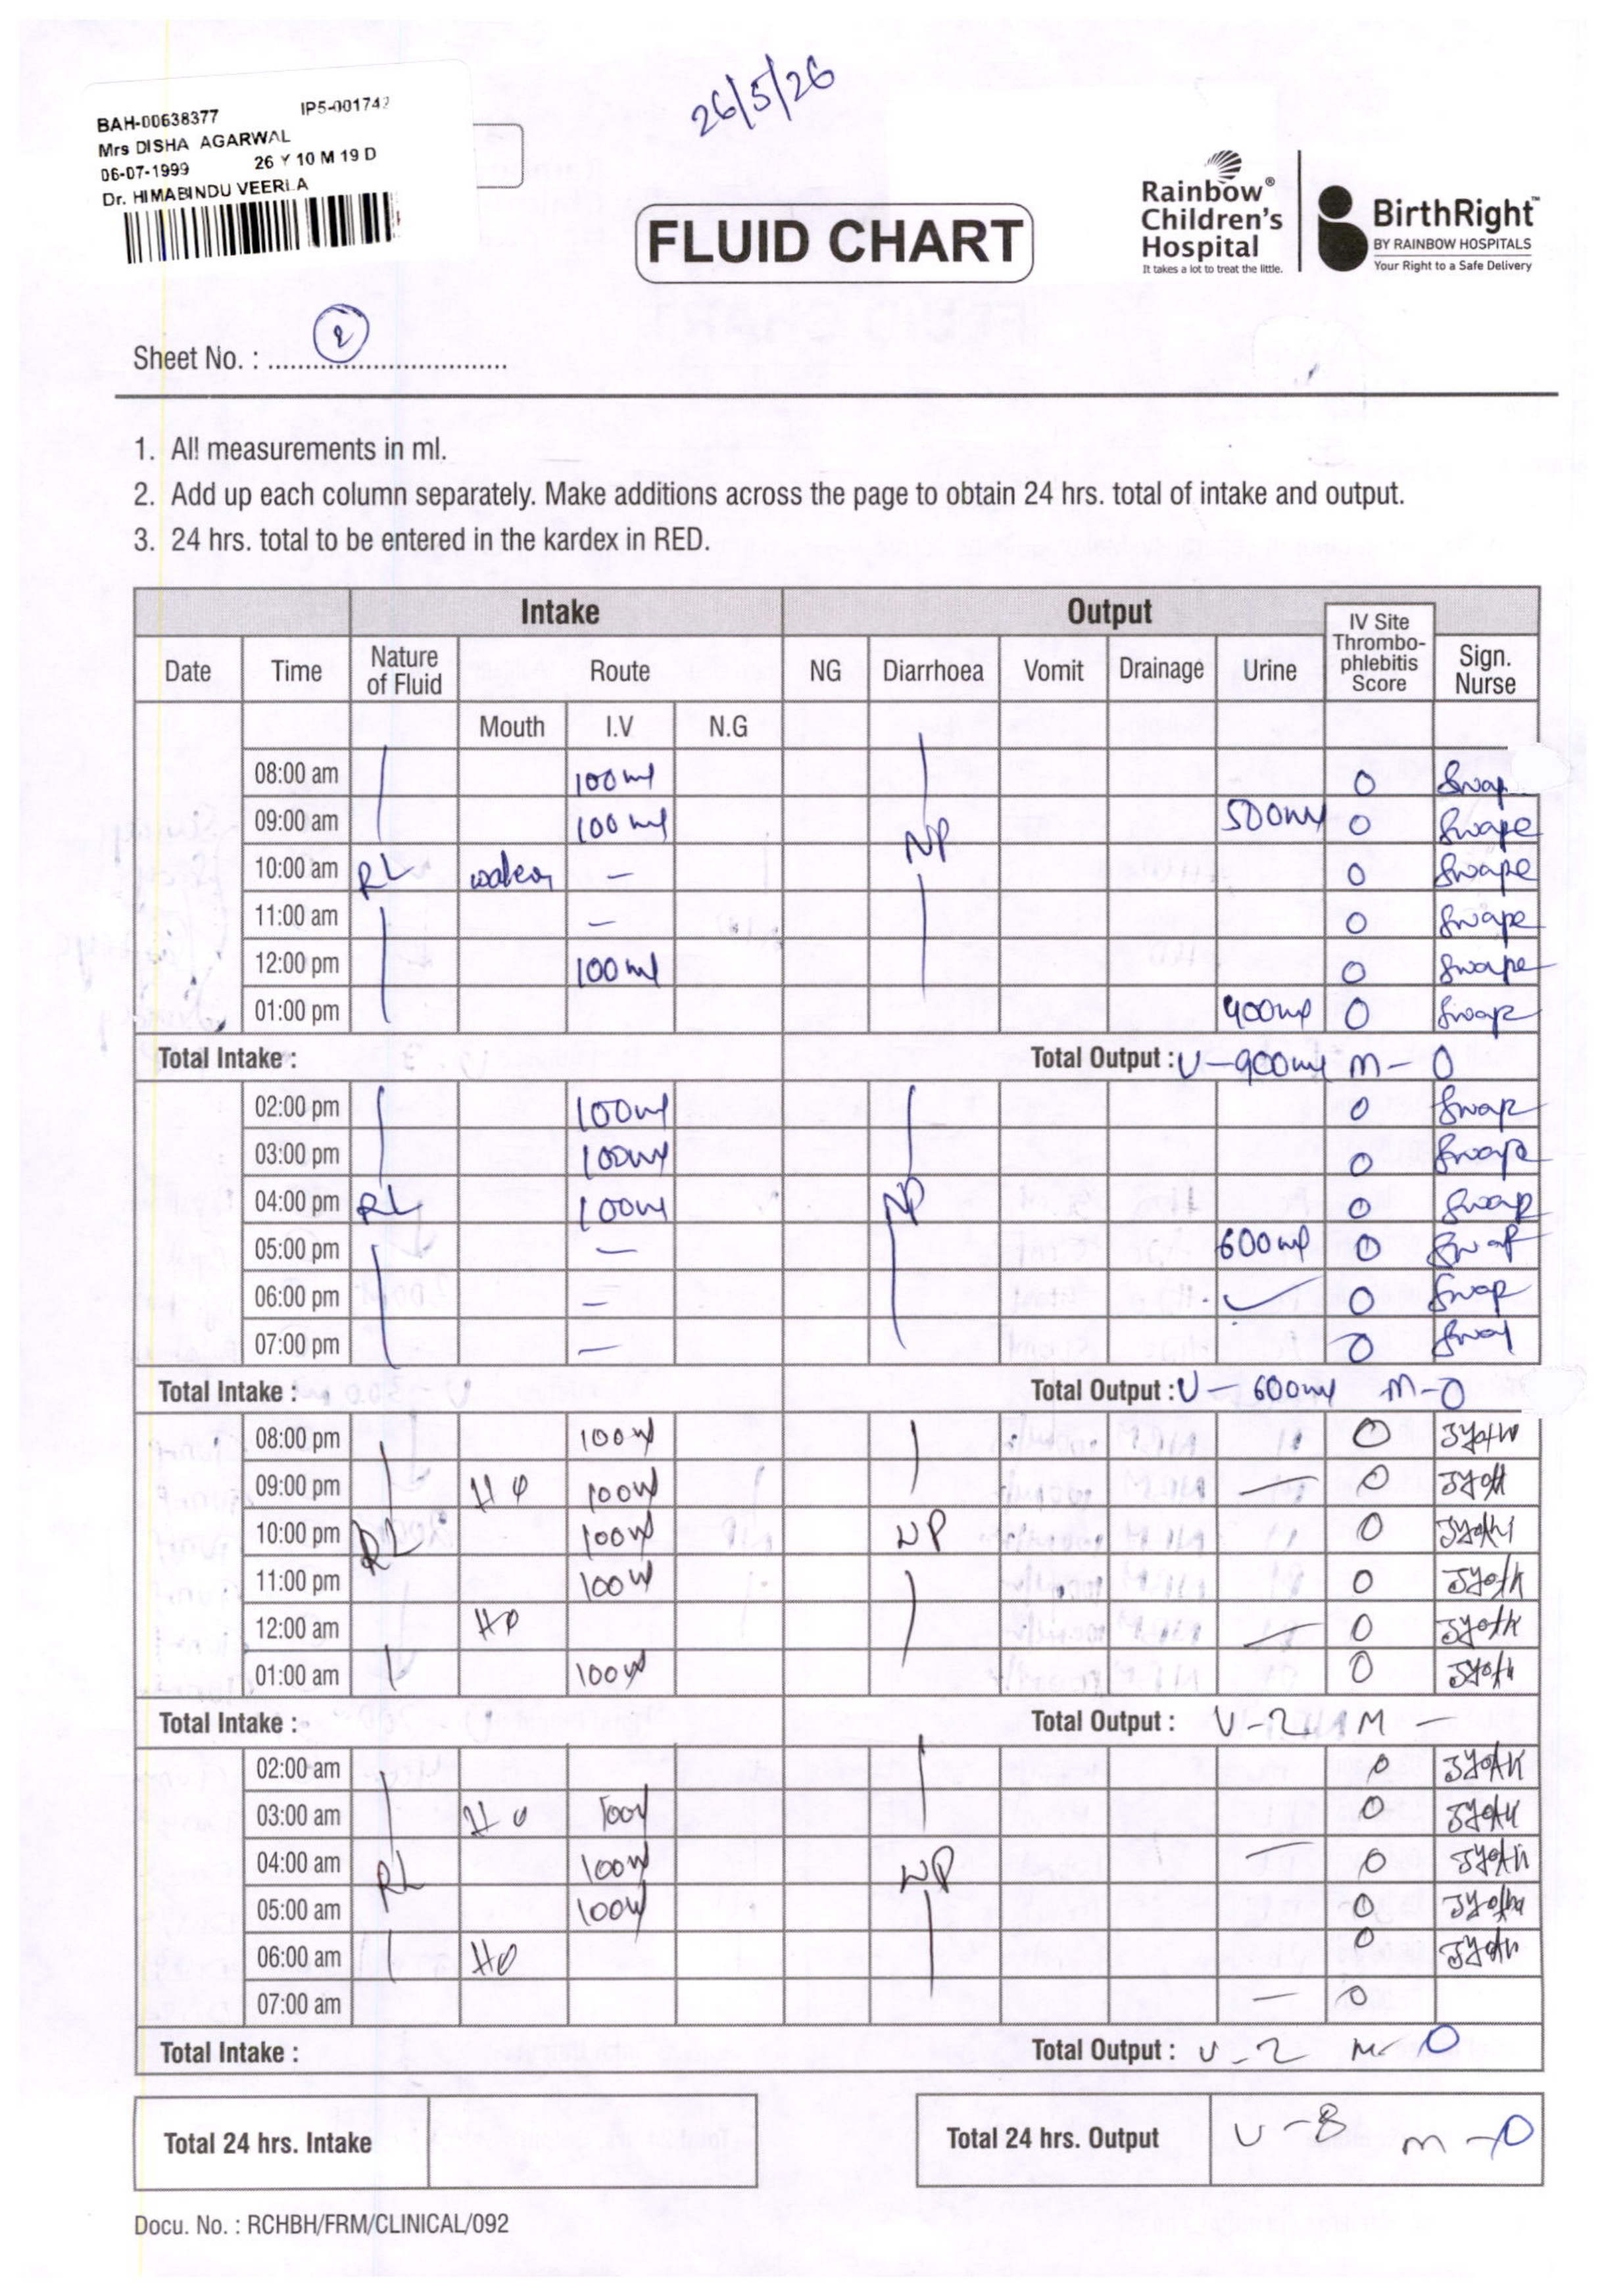 26/5/26
BAH-00638377 IP5-001742
Mrs DISHA AGARWAL
06-07-1999 26 Y 10 M 19 D
Dr. HIMABINDU VEERLA
FLUID CHART
Rainbow® Children's Hospital
It takes a lot to treat the little.
BirthRight™
BY RAINBOW HOSPITALS
Your Right to a Safe Delivery
Sheet No. : 2
1. All measurements in ml.
2. Add up each column separately. Make additions across the page to obtain 24 hrs. total of intake and output.
3. 24 hrs. total to be entered in the kardex in RED.
Intake Output IV Site Thrombo-phlebitis Score
Date Time Nature of Fluid Route NG Diarrhoea Vomit Drainage Urine Sign. Nurse
Mouth I.V N.G
08:00 am 100ml 0 Swap
09:00 am 100ml NP 500ml 0 Swape
10:00 am RL water – 0 Swape
11:00 am – 0 Swape
12:00 pm 100ml 0 Swape
01:00 pm 400ml 0 Swap
Total Intake : Total Output : U-900ml M-0
02:00 pm 100ml 0 Swap
03:00 pm 100ml 0 Swap
04:00 pm RL 100ml NP 0 Swap
05:00 pm – 600ml 0 Swap
06:00 pm – ✓ 0 Swap
07:00 pm – 0 Swap
Total Intake : Total Output : U-600ml M-0
08:00 pm 100ml 0 Jyothi
09:00 pm 100ml – 0 Jyothi
10:00 pm RL 100ml NP 0 Jyothi
11:00 pm 100ml 0 Jyothi
12:00 am – 0 Jyothi
01:00 am 100ml 0 Jyothi
Total Intake : Total Output : U-2 M –
02:00 am 0 Jyothi
03:00 am 100ml 0 Jyothi
04:00 am RL 100ml NP – 0 Jyothi
05:00 am 100ml 0 Jyothi
06:00 am 0 Jyothi
07:00 am – 0
Total Intake : Total Output : U-2 M-0
Total 24 hrs. Intake Total 24 hrs. Output U-8 M-0
Docu. No. : RCHBH/FRM/CLINICAL/092